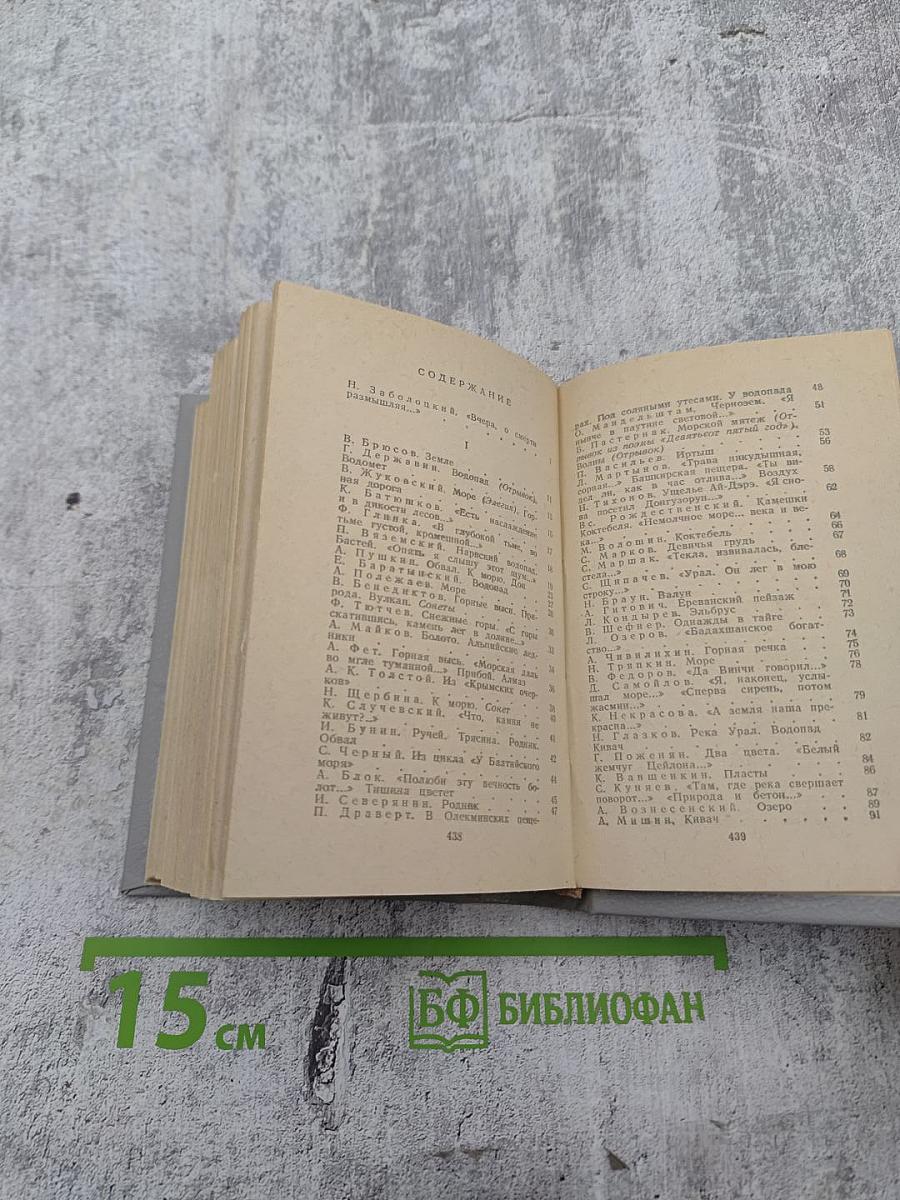 СОДЕРЖАНИЕ
Н. Заболоцкий. «Вчера, о смерти
размышляя...»
I
В. Брюсов. Земле
Г. Державин. Водопад (Отрывок). 11
Водомет
В. Жуковский. Море (Элегия). Гор-
ная дорога
К. Батюшков. «Есть наслаждение
и в дикости лесов...»
Ф. Глинка. «В глубокой тьме, во
тьме густой, кромешной...»
П. Вяземский. Нарвский водопад.
Бастей. «Опять я слышу этот шум...»
А. Пушкин. Обвал. К морю. Дон
Е. Баратынский. Водопад
А. Полежаев. Море
В. Бенедиктов. Горные выси. При-
рода. Вулкан. Сонеты
Ф. Тютчев. Снежные горы. «С горы
скатившись, камень лег в долине...»
А. Майков. Болото. Альпийские лед-
ники 33
А. Фет. Горная высь. «Морская даль
во мгле туманной...» Прибой. Алмаз 34
А. К. Толстой. Из «Крымских очер-
ков» 36
Н. Щербина. К морю. Сонет 38
К. Случевский. «Что, камня не
живут?..» 40
И. Бунин. Ручей. Трясина. Родник. 41
Обвал
С. Черный. Из цикла «У Балтийского 42
моря»
А. Блок. «Полюби эту вечность бо- 44
лот...» Тишина цветет 45
И. Северянин. Родник 47
П. Драверт. В Олекминских пеще-
438
рах. Под соляными утесами. У водопада 48
О. Мандельштам. Чернозем. «Я
ныне в паутине световой...» 51
Б. Пастернак. Морской мятеж (От-
рывок из поэмы «Девятьсот пятый год»).
Волны (Отрывок) 53
П. Васильев. Иртыш 56
Л. Мартынов. «Трава никудышная,
сорная...» Башкирская пещера. «Ты ви-
дел ли, как в час отлива...» Воздух 58
Н. Тихонов. Ущелье Ай-Дэрэ. «Я сно-
ва посетил Донгузорун...» 62
Вс. Рождественский. Камешки
Коктебеля. «Немолчное море... века и ве-
ка...» 64
М. Волошин. Коктебель 66
С. Марков. Девичья грудь 67
С. Маршак. «Текла, извивалась, бле-
стела...» 68
С. Щипачев. «Урал. Он лег в мою
строку...» 69
Н. Браун. Валун 70
А. Гитович. Ереванский пейзаж 71
Л. Кондырев. Эльбрус 72
В. Шефнер. Однажды в тайге 73
Л. Озеров. «Бадахшанское богат-
ство...» 74
А. Чивилихин. Горная речка 75
Н. Тряпкин. Море 76
В. Федоров. «Да Винчи говорил...» 78
Д. Самойлов. «Я, наконец, услы-
шал море...» «Сперва сирень, потом
жасмин...» 79
К. Некрасова. «А земля наша пре-
красна...» 81
Н. Глазков. Река Урал. Водопад
Кивач 82
Г. Поженян. Два цвета. «Белый
жемчуг Цейлона...» 84
К. Ваншенкин. Пласты 86
С. Куняев. «Там, где река свершает
поворот...» «Природа и бетон...» 87
А. Вознесенский. Озеро 89
А. Мишин. Кивач 91
439
15 см
БФ БИБЛИОФАН